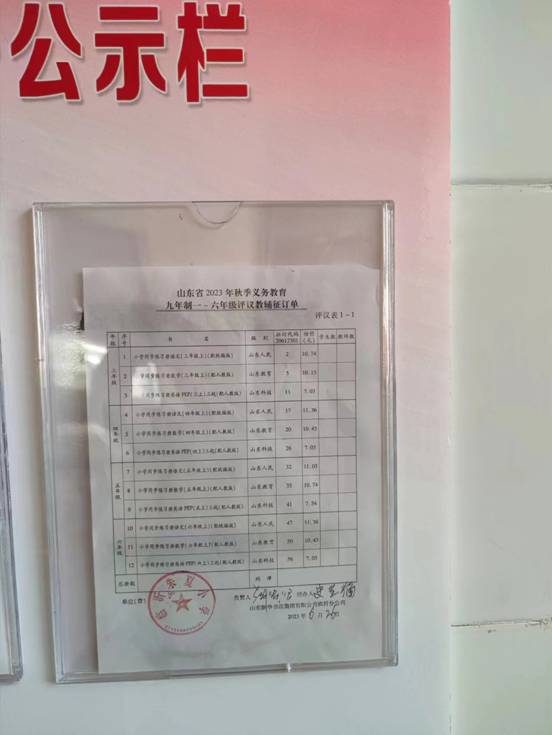 公示栏
山东省 2023 年秋季义务教育
九年制一～六年级评议教辅征订单
评议表 1-1
年级 序号 书 名 版 别 征订代码 20612301 估价 (元) 学生数 教师数
三年级
1 小学同步练习册语文(三年级上)(配统编版) 山东人民 2 10.74
2 小学同步练习册数学(三年级上)(配人教版) 山东教育 5 10.13
3 小学同步练习册英语PEP(三上)三起(配人教版) 山东科技 11 7.03
四年级
4 小学同步练习册语文(四年级上)(配统编版) 山东人民 17 11.36
5 小学同步练习册数学(四年级上)(配人教版) 山东教育 20 10.43
6 小学同步练习册英语PEP(四上)三起(配人教版) 山东科技 26 7.03
五年级
7 小学同步练习册语文(五年级上)(配统编版) 山东人民 32 11.05
8 小学同步练习册数学(五年级上)(配人教版) 山东教育 35 10.74
9 小学同步练习册英语PEP(五上)三起(配人教版) 山东科技 41 7.34
六年级
10 小学同步练习册语文(六年级上)(配统编版) 山东人民 47 11.36
11 小学同步练习册数学(六年级上)(配人教版) 山东教育 50 10.43
12 小学同步练习册英语PEP(六上)三起(配人教版) 山东科技 56 7.03
总册数 码 洋
单位(章) 负责人 经办人
山东新华书店集团有限公司 分公司
2023 年 6 月 26